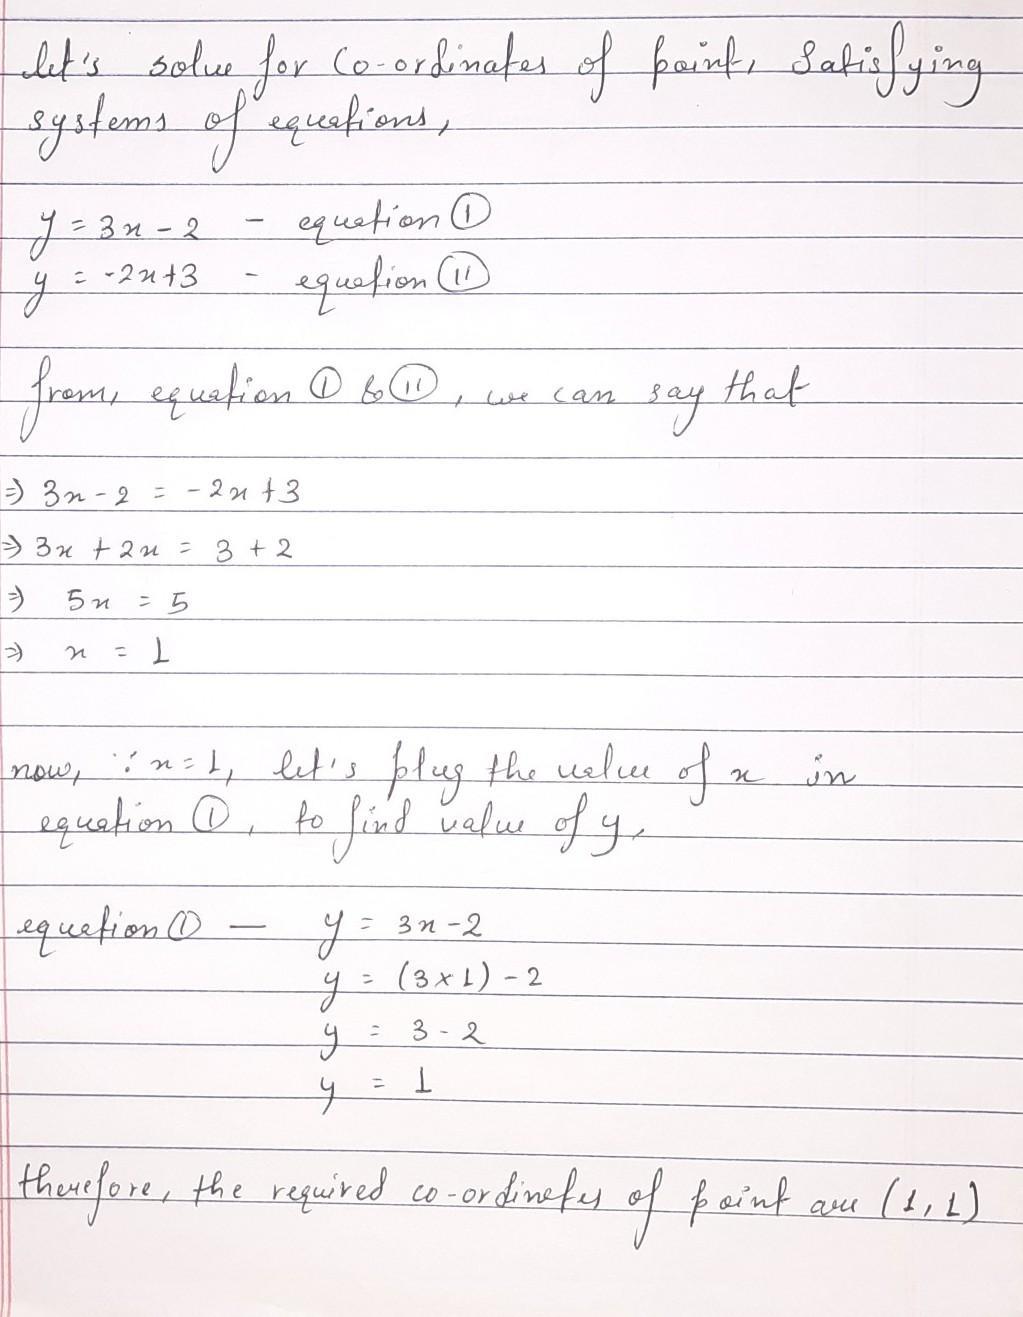 let's solve for co-ordinates of point, satisfying
systems of equations,
y = 3x - 2 - equation ①
y = -2x+3 - equation ⑪
from, equation ① & ⑪, we can say that
⇒ 3x - 2 = -2x + 3
⇒ 3x + 2x = 3 + 2
⇒ 5x = 5
⇒ x = 1
now, ∵ x = 1, let's plug the value of x in
equation ①, to find value of y,
equation ① — y = 3x - 2
y = (3 × 1) - 2
y = 3 - 2
y = 1
therefore, the required co-ordinates of point are (1, 1)